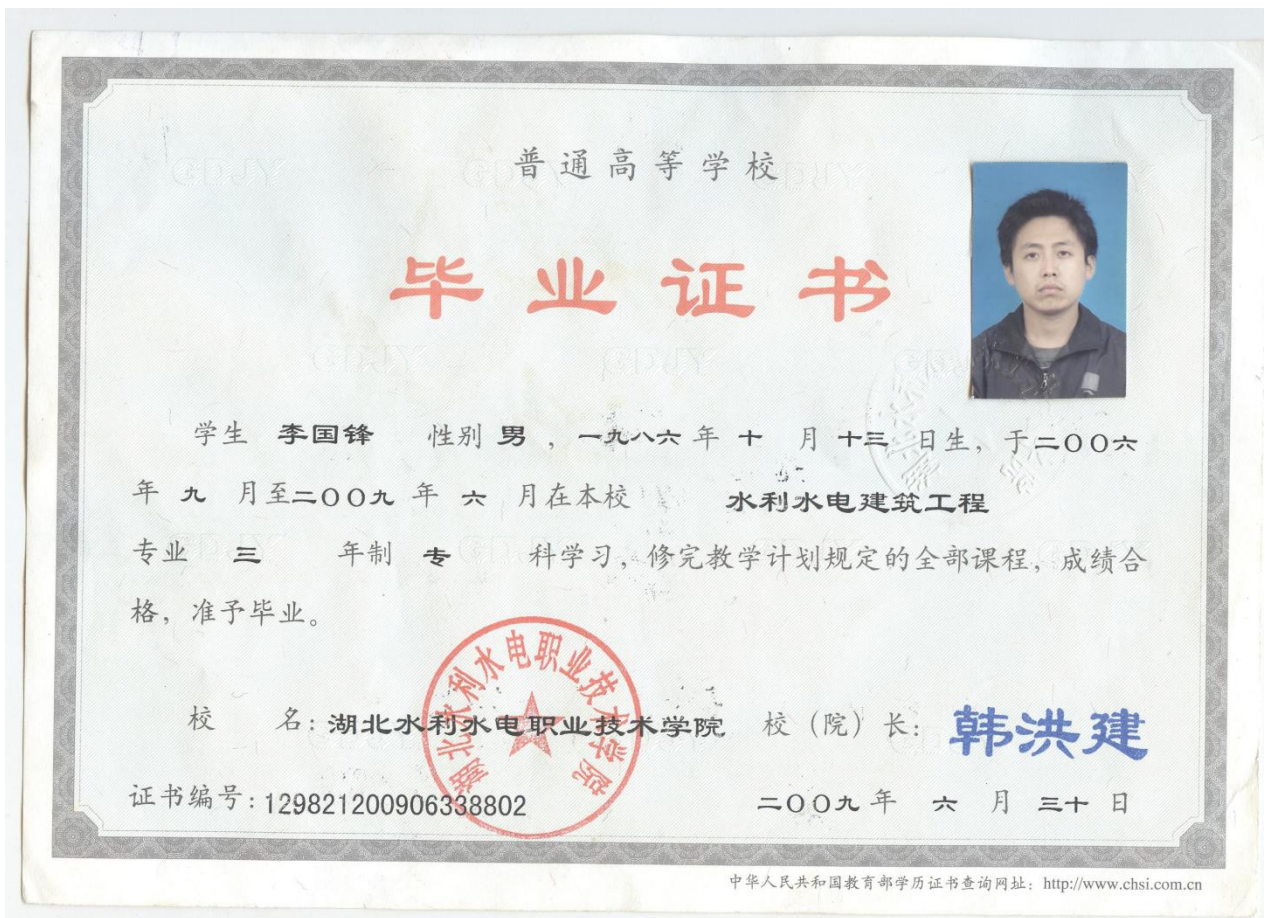 普通高等学校
毕业证书
学生 李国锋 性别 男 ，一九八六 年 十 月 十三 日生，于二〇〇六
年 九 月至二〇〇九 年 六 月在本校 水利水电建筑工程
专业 三 年制 专 科学习，修完教学计划规定的全部课程，成绩合
格，准予毕业。
湖北水利水电职业技术学院
校 名：湖北水利水电职业技术学院 校（院）长：韩洪建
证书编号：129821200906338802 二〇〇九 年 六 月 三十 日
中华人民共和国教育部学历证书查询网址：http://www.chsi.com.cn